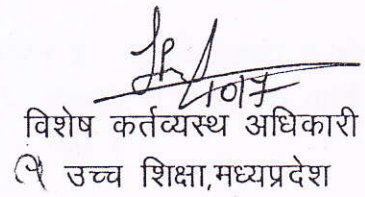 10/7
विशेष कर्तव्यस्थ अधिकारी
उच्च शिक्षा,मध्यप्रदेश